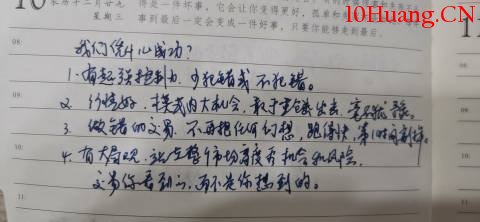 是一件坏事，它会让你变得更好，孤单和
星期三
事到最后一定会变成一件好事，只要你能够走到最后。
10Huang.CN
08:
我们凭什么成功？
1. 有超强控制力，少犯错或不犯错。
09:
2. 行情好，模式内大机会，敢于重仓出击，毫不犹豫。
3. 做错的交易，不再抱任何幻想，跑得快，第1时间割掉。
10:
4. 有大局观，站在整个市场高度看机会和风险，
交易你看到的，而不是你想到的。
11: